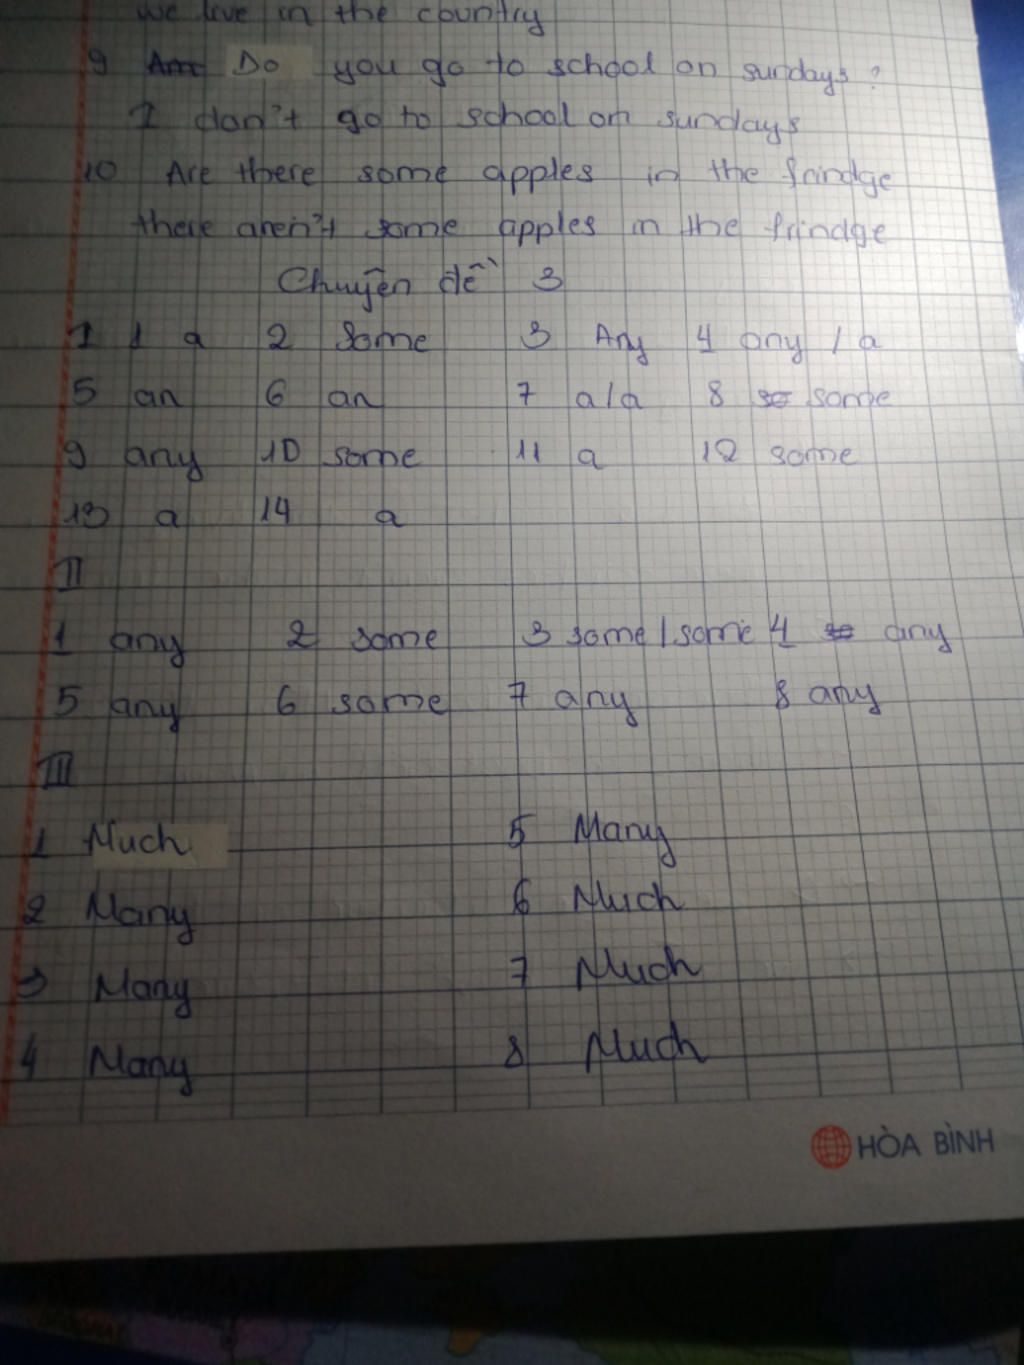 we live in the country
9 Do you go to school on sundays?
I don't go to school on sundays
10 Are there some apples in the frindge
there aren't some apples in the frindge
Chuyên đề 3
I 1 a 2 some 3 Any 4 any / a
5 an 6 an 7 a/a 8 some
9 any 10 some 11 a 12 some
13 a 14 a
II
1 any 2 some 3 some/some 4 any
5 any 6 some 7 any 8 any
III
1 Much 5 Many
2 Many 6 Much
3 Many 7 Much
4 Many 8 Much
HÒA BÌNH